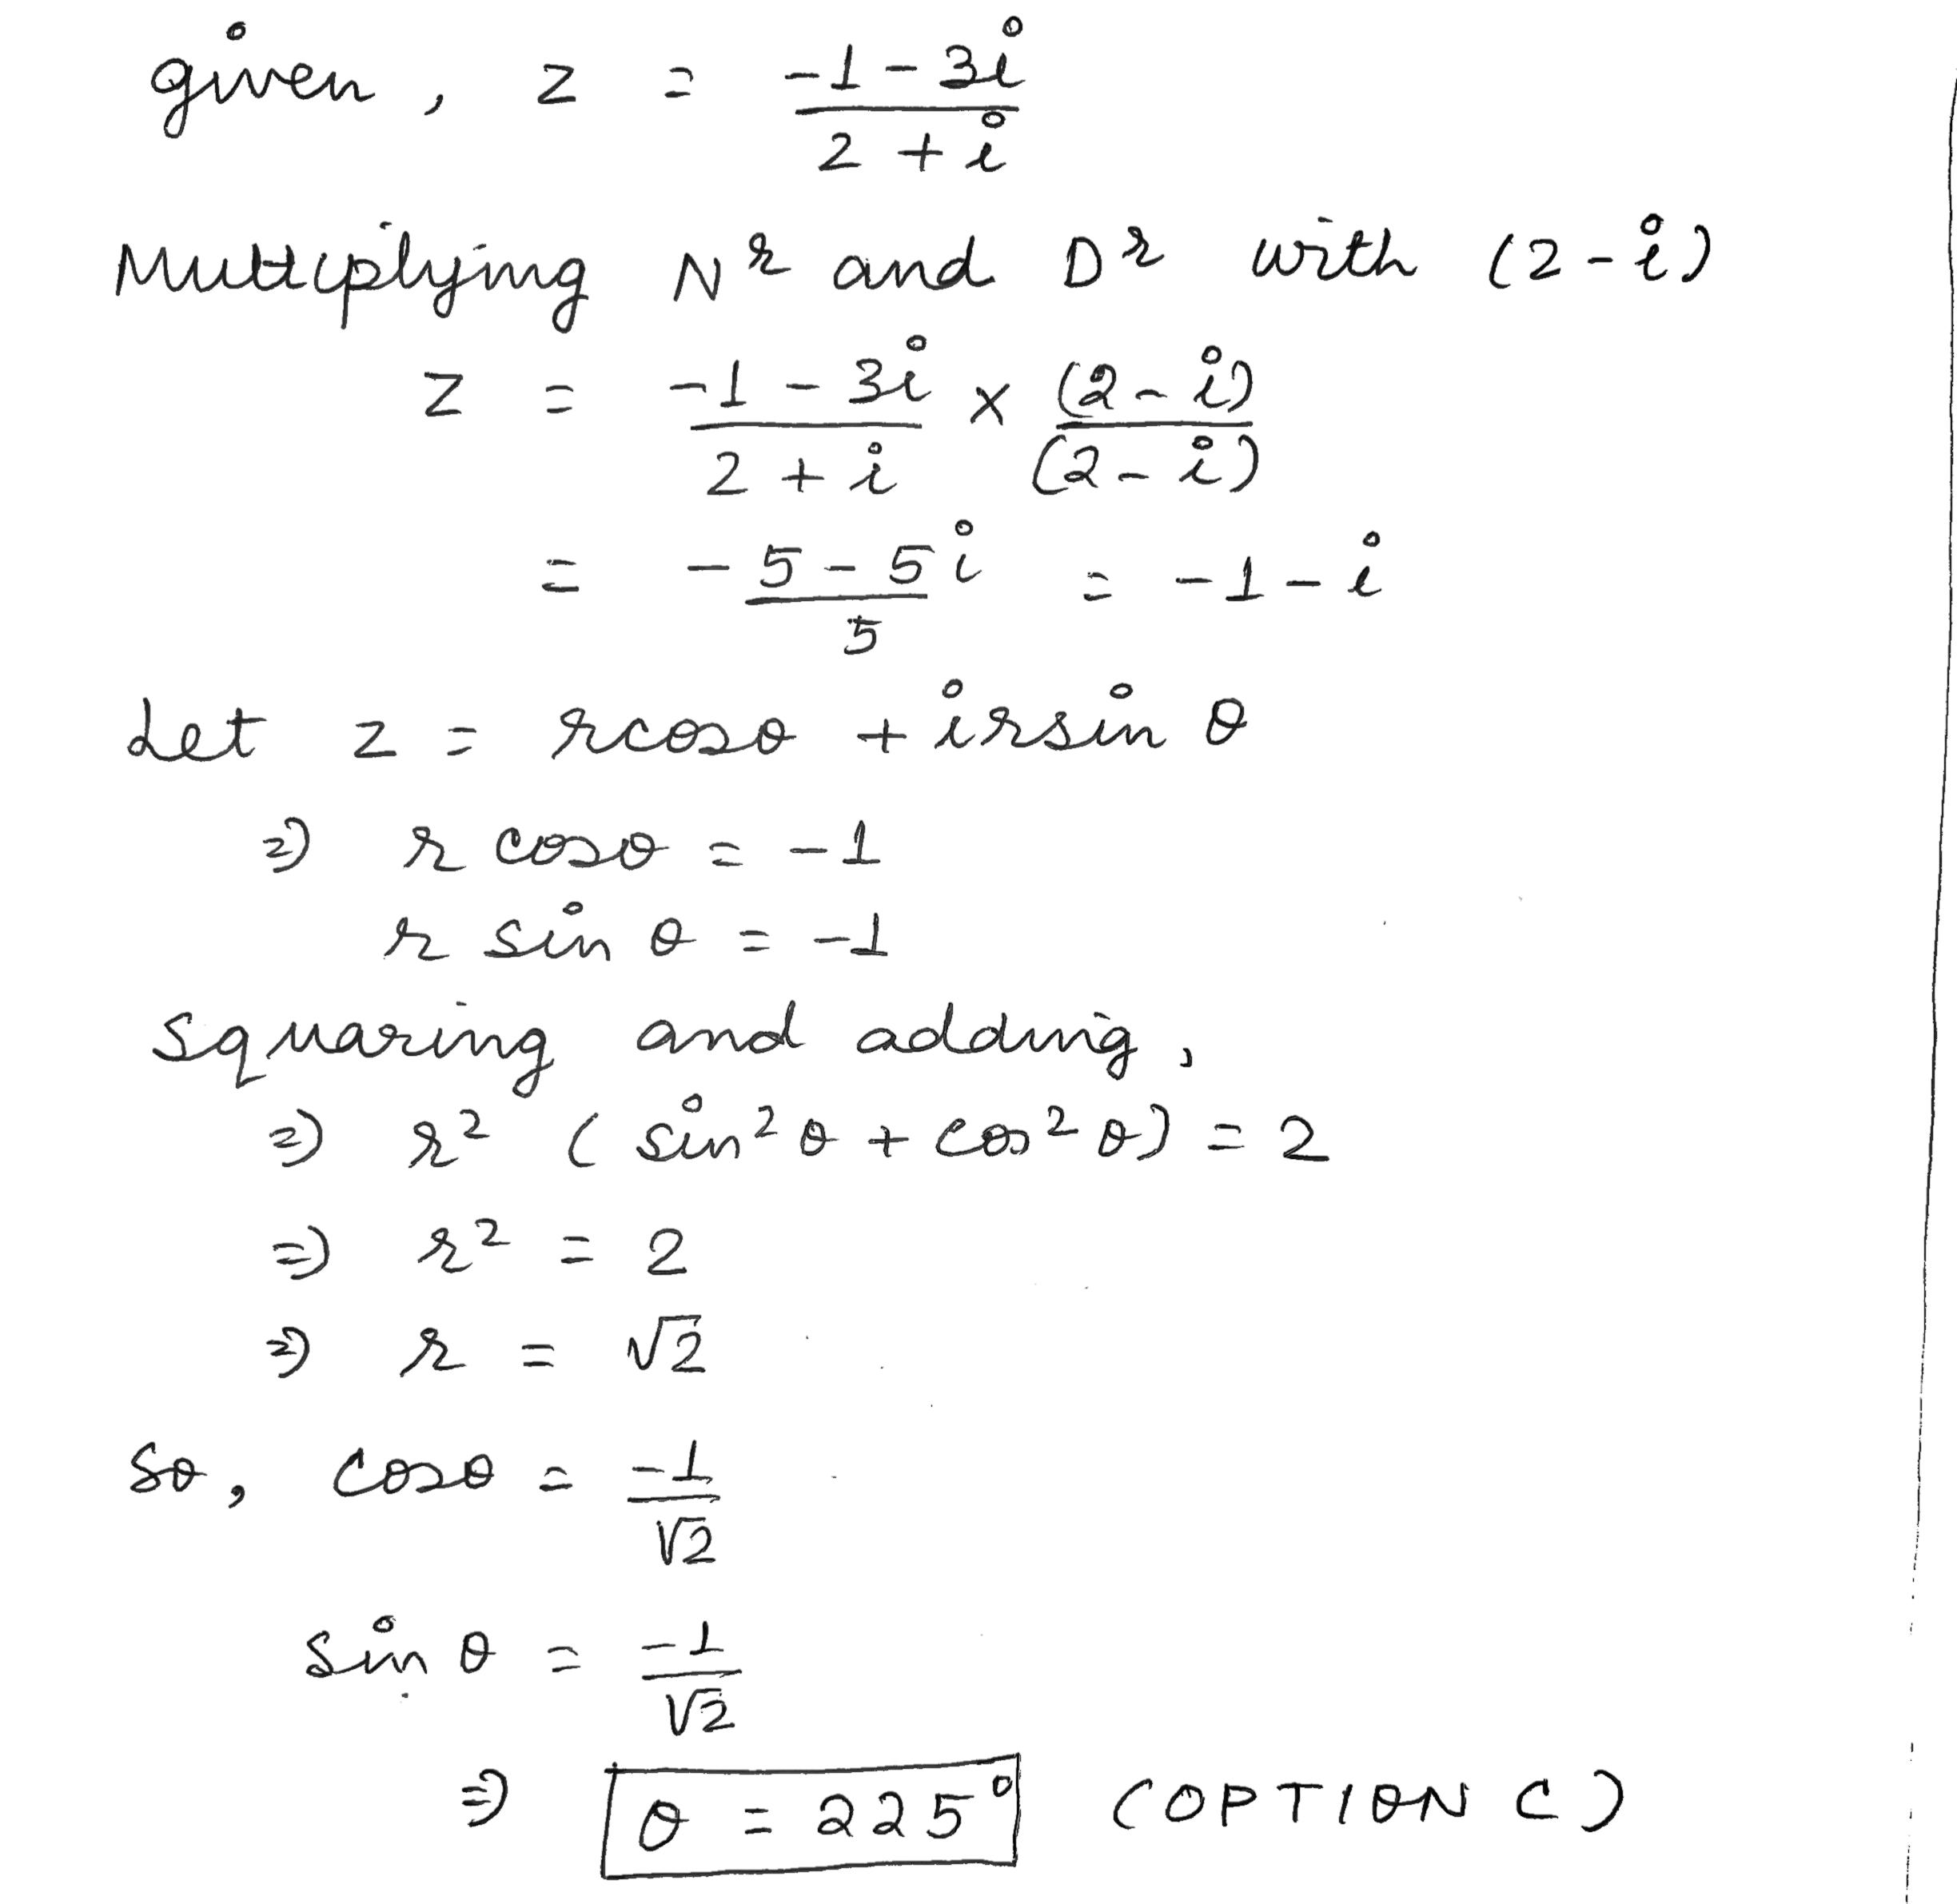 given, z = (-1-3i)/(2+i)
Multiplying Nʳ and Dʳ with (2-i)
z = (-1-3i)/(2+i) × (2-i)/(2-i)
= (-5-5i)/5 = -1-i
Let z = rcosθ + irsinθ
⇒ r cosθ = -1
r sinθ = -1
squaring and adding,
⇒ r² (sin²θ + cos²θ) = 2
⇒ r² = 2
⇒ r = √2
So, cosθ = -1/√2
sinθ = -1/√2
⇒ θ = 225° (OPTION C)